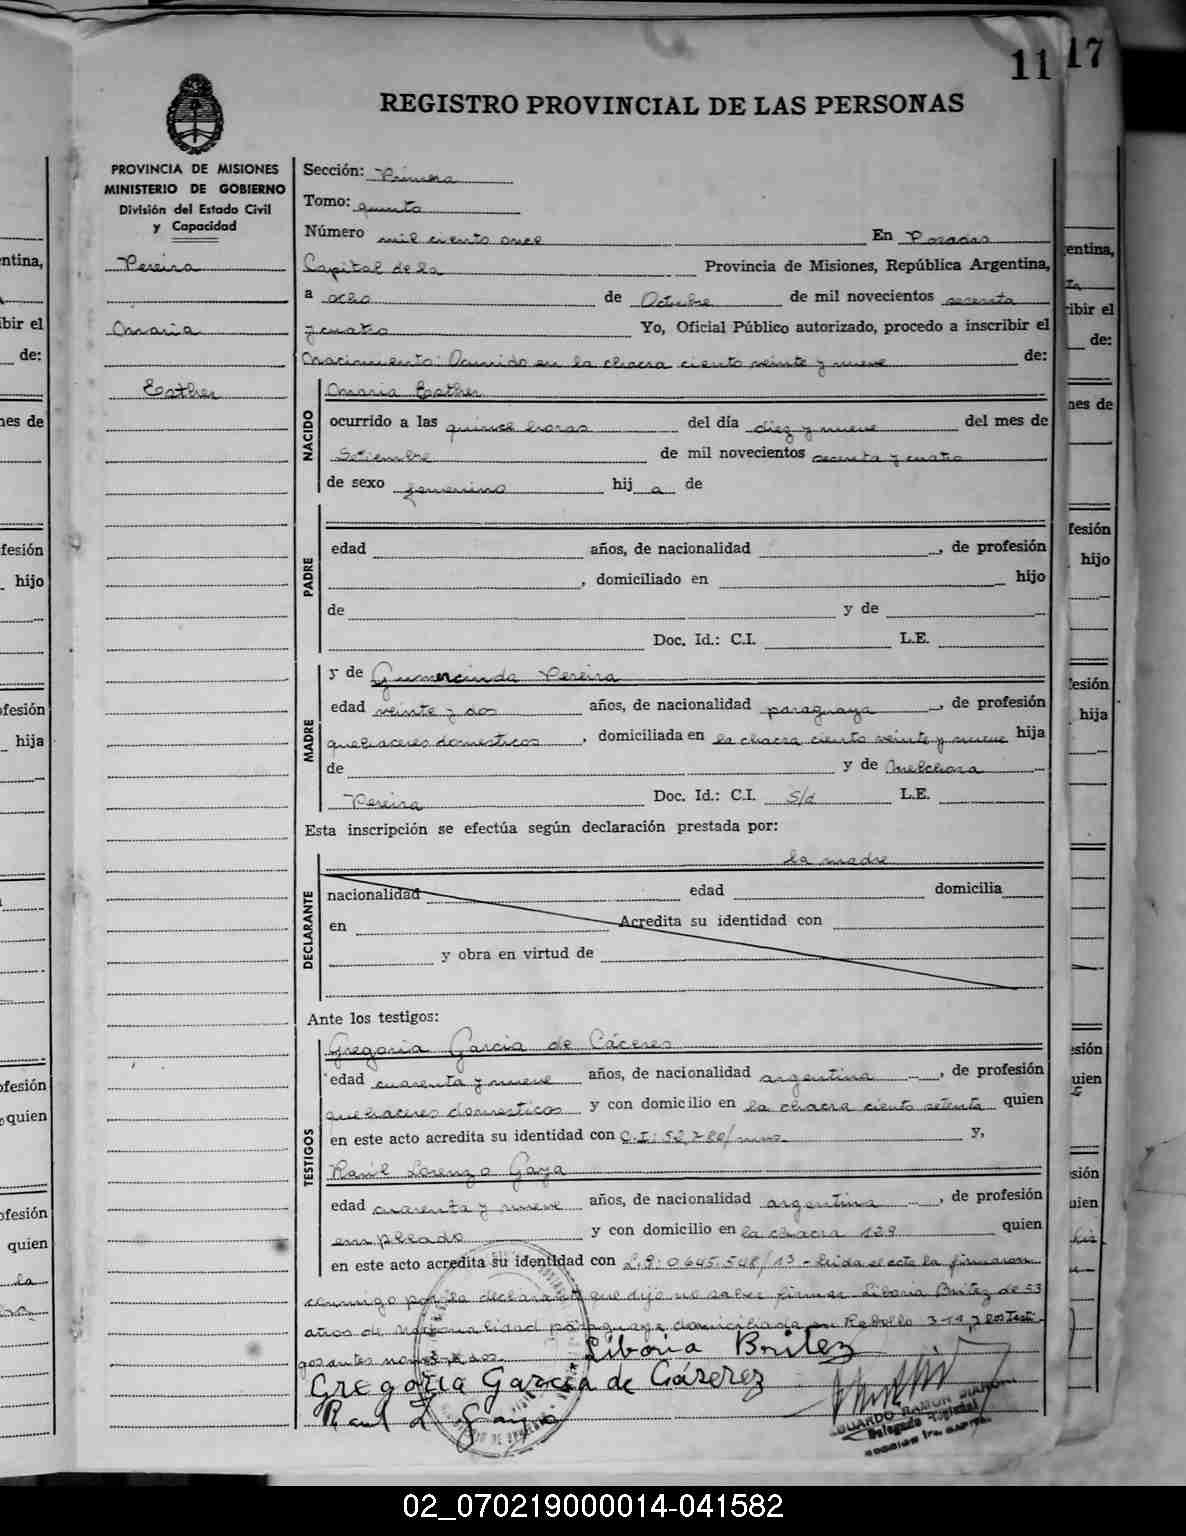 11
17
REGISTRO PROVINCIAL DE LAS PERSONAS
PROVINCIA DE MISIONES
MINISTERIO DE GOBIERNO
División del Estado Civil
y Capacidad
Pereira
Maria
Esther
Sección: Primera
Tomo: quinto
Número mil ciento once En Posadas
Capital de la Provincia de Misiones, República Argentina,
a ocho de Octubre de mil novecientos sesenta
y cuatro Yo, Oficial Público autorizado, procedo a inscribir el
Nacimiento: Ocurrido en la chacra ciento veinte y nueve de:
NACIDO
Maria Esther
ocurrido a las quince horas del día diez y nueve del mes de
Setiembre de mil novecientos sesenta y cuatro
de sexo femenino hij a de
PADRE
edad años, de nacionalidad , de profesión
, domiciliado en hijo
de y de
Doc. Id.: C.I. L.E.
MADRE
y de Gumercinda Pereira
edad veinte y dos años, de nacionalidad paraguaya , de profesión
quehaceres domesticos , domiciliada en la chacra ciento veinte y nueve hija
de y de Melchora
Pereira Doc. Id.: C.I. S/d L.E.
Esta inscripción se efectúa según declaración prestada por:
la madre
DECLARANTE
nacionalidad edad domicilia
en Acredita su identidad con
y obra en virtud de
Ante los testigos:
TESTIGOS
Gregoria Garcia de Cáceres
edad cuarenta y nueve años, de nacionalidad argentina , de profesión
quehaceres domesticos y con domicilio en la chacra ciento setenta quien
en este acto acredita su identidad con C.I: y,
Raúl Lorenzo Gaya
edad cuarenta y nueve años, de nacionalidad argentina , de profesión
empleado y con domicilio en la chacra 129 quien
en este acto acredita su identidad con L.E: 0645.548/13 - Leida el acta la firmaron
conmigo por la declarante que dijo no saber firmar Liboria Britez de 53
años de nacionalidad paraguaya domiciliada en Rebollo y los testi
gos antes nombrados
Liboria Britez
Gregoria Garcia de Cáserez
Raul L Gaya
EDUARDO RAMON
Delegado
02_070219000014-041582